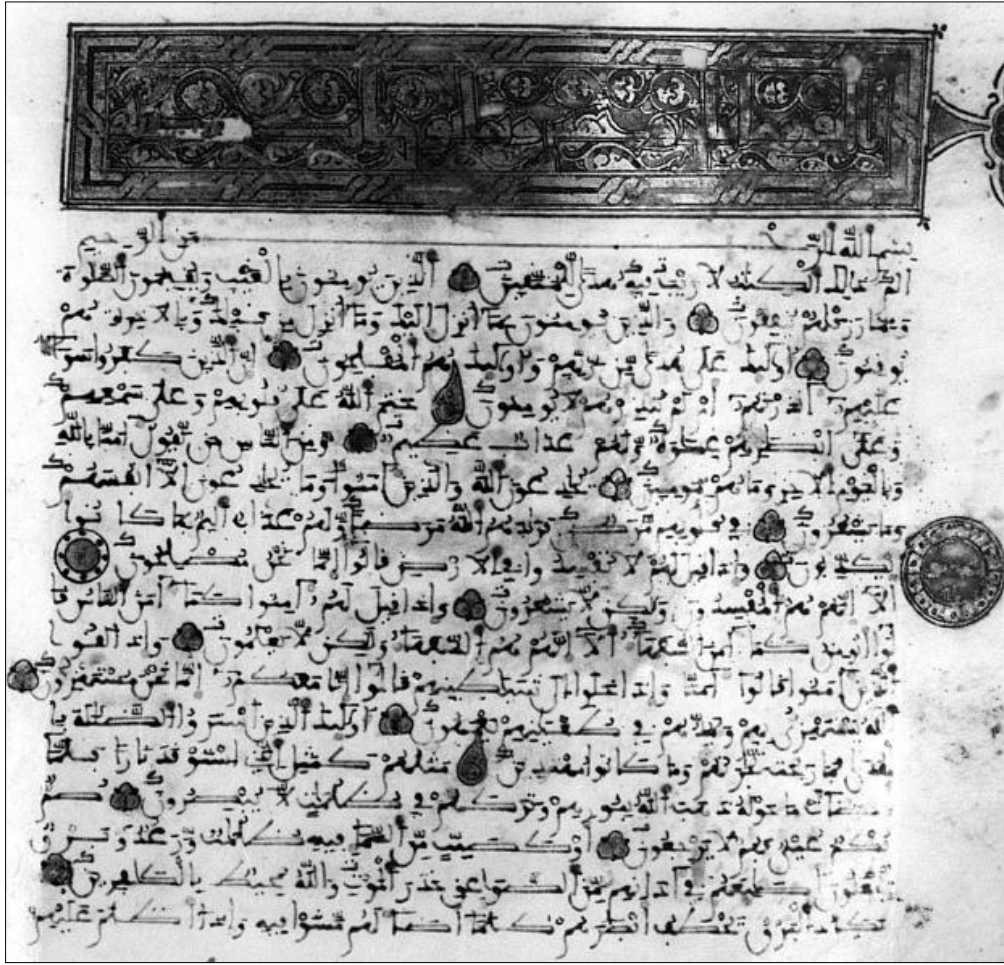 بسم الله الرحمن الرحيم
الم ذلك الكتب لا ريب فيه هدى للمتقين الذين يومنون بالغيب ويقيمون الصلوة
ومما رزقنهم ينفقون والذين يومنون بما انزل اليك وما انزل من قبلك وبالاخرة هم
يوقنون اولئك على هدى من ربهم واولئك هم المفلحون ان الذين كفروا سواء
عليهم ءانذرتهم ام لم تنذرهم لا يومنون ختم الله على قلوبهم وعلى سمعهم
وعلى ابصرهم غشوة ولهم عذاب عظيم ومن الناس من يقول ءامنا بالله
وباليوم الاخر وما هم بمومنين يخدعون الله والذين ءامنوا وما يخدعون الا انفسهم
وما يشعرون في قلوبهم مرض فزادهم الله مرضا ولهم عذاب اليم بما كانوا
يكذبون واذا قيل لهم لا تفسدوا في الارض قالوا انما نحن مصلحون
الا انهم هم المفسدون ولكن لا يشعرون واذا قيل لهم ءامنوا كما ءامن الناس قا
لوا انومن كما ءامن السفهاء الا انهم هم السفهاء ولكن لا يعلمون واذا لقوا
الذين ءامنوا قالوا ءامنا واذا خلوا الى شيطينهم قالوا انا معكم انما نحن مستهزءون
الله يستهزئ بهم ويمدهم في طغينهم يعمهون اولئك الذين اشتروا الضللة با
لهدى فما ربحت تجرتهم وما كانوا مهتدين مثلهم كمثل الذي استوقد نارا فلما
اضاءت ما حوله ذهب الله بنورهم وتركهم في ظلمت لا يبصرون صم
بكم عمي فهم لا يرجعون او كصيب من السماء فيه ظلمت ورعد وبرق
يجعلون اصبعهم في ءاذانهم من الصوعق حذر الموت والله محيط بالكفرين
يكاد البرق يخطف ابصرهم كلما اضاء لهم مشوا فيه واذا اظلم عليهم